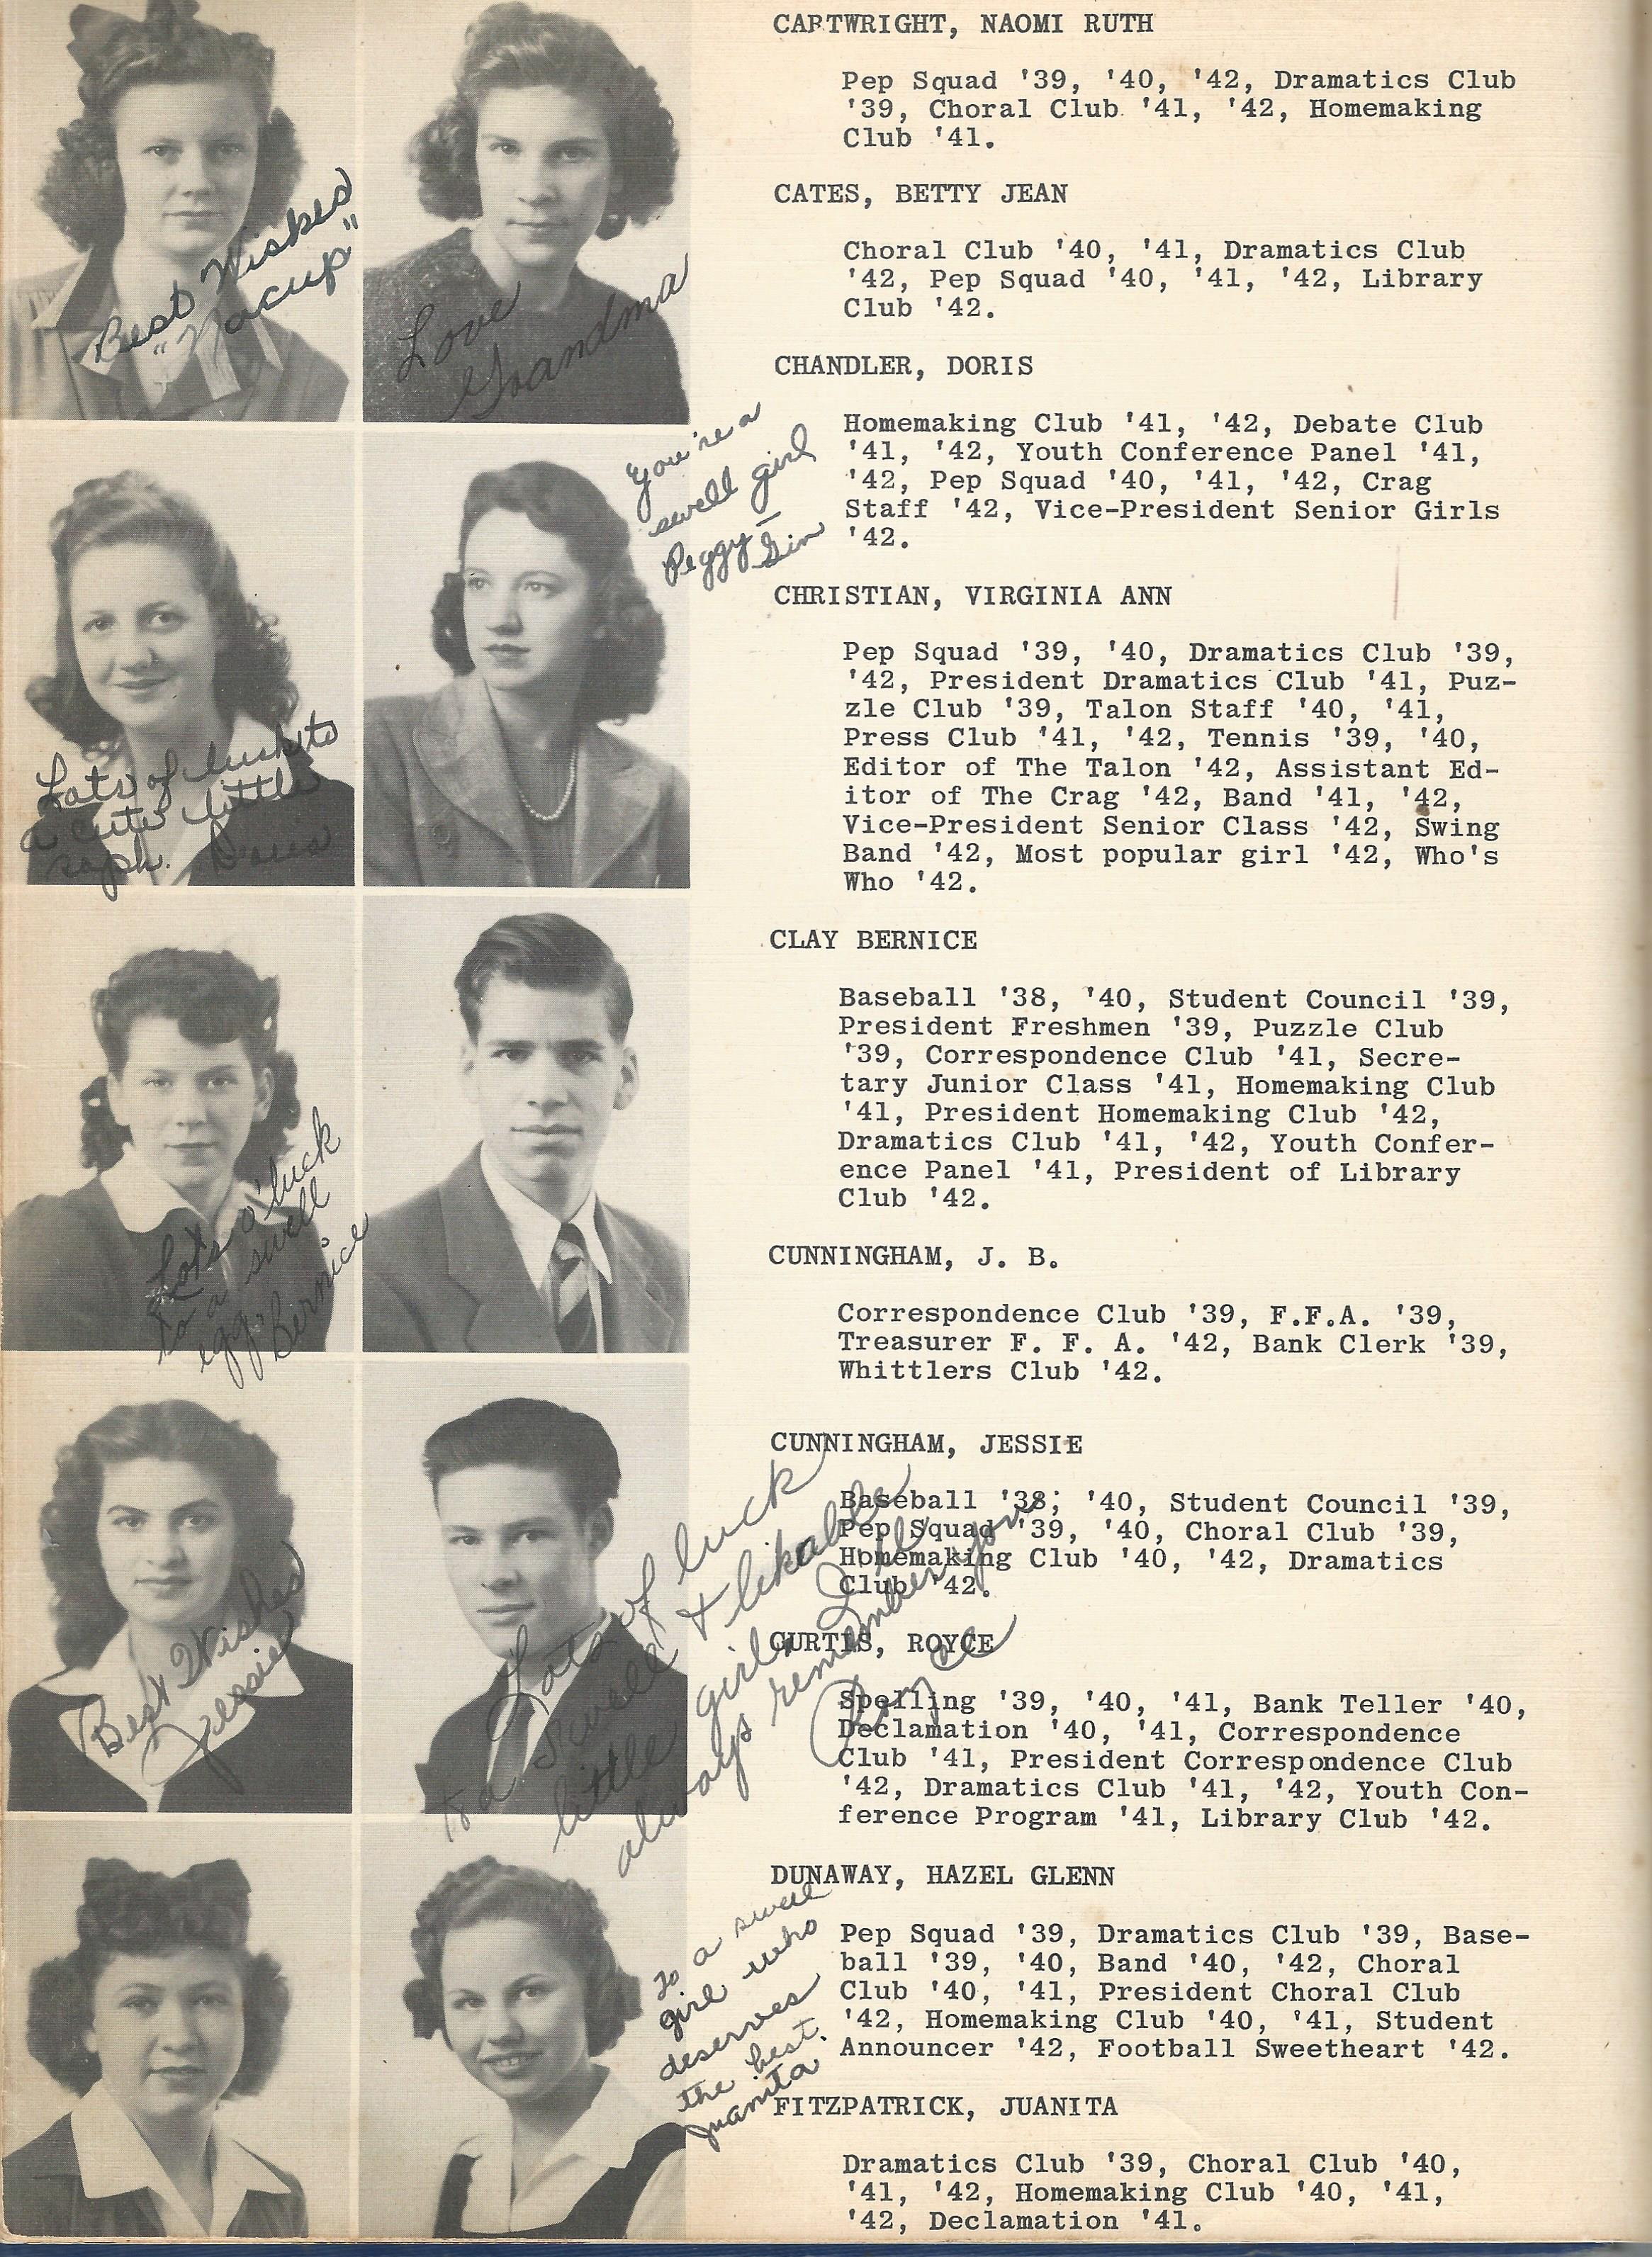 CARTWRIGHT, NAOMI RUTH
Pep Squad '39, '40, '42, Dramatics Club
'39, Choral Club '41, '42, Homemaking
Club '41.
CATES, BETTY JEAN
Choral Club '40, '41, Dramatics Club
'42, Pep Squad '40, '41, '42, Library
Club '42.
CHANDLER, DORIS
Homemaking Club '41, '42, Debate Club
'41, '42, Youth Conference Panel '41,
'42, Pep Squad '40, '41, '42, Crag
Staff '42, Vice-President Senior Girls
'42.
CHRISTIAN, VIRGINIA ANN
Pep Squad '39, '40, Dramatics Club '39,
'42, President Dramatics Club '41, Puz-
zle Club '39, Talon Staff '40, '41,
Press Club '41, '42, Tennis '39, '40,
Editor of The Talon '42, Assistant Ed-
itor of The Crag '42, Band '41, '42,
Vice-President Senior Class '42, Swing
Band '42, Most popular girl '42, Who's
Who '42.
CLAY BERNICE
Baseball '38, '40, Student Council '39,
President Freshmen '39, Puzzle Club
'39, Correspondence Club '41, Secre-
tary Junior Class '41, Homemaking Club
'41, President Homemaking Club '42,
Dramatics Club '41, '42, Youth Confer-
ence Panel '41, President of Library
Club '42.
CUNNINGHAM, J. B.
Correspondence Club '39, F.F.A. '39,
Treasurer F. F. A. '42, Bank Clerk '39,
Whittlers Club '42.
CUNNINGHAM, JESSIE
Baseball '38; '40, Student Council '39,
Pep Squad '39, '40, Choral Club '39,
Homemaking Club '40, '42, Dramatics
Club '42.
CURTIS, ROYCE
Spelling '39, '40, '41, Bank Teller '40,
Declamation '40, '41, Correspondence
Club '41, President Correspondence Club
'42, Dramatics Club '41, '42, Youth Con-
ference Program '41, Library Club '42.
DUNAWAY, HAZEL GLENN
Pep Squad '39, Dramatics Club '39, Base-
ball '39, '40, Band '40, '42, Choral
Club '40, '41, President Choral Club
'42, Homemaking Club '40, '41, Student
Announcer '42, Football Sweetheart '42.
FITZPATRICK, JUANITA
Dramatics Club '39, Choral Club '40,
'41, '42, Homemaking Club '40, '41,
'42, Declamation '41.
Best Wishes
Love
Grandma
You're a
swell girl
Peggy –
Gin
Lots of luck to
a cute little
soph. Doris
Lots o' luck
to a swell
egg. Bernice
Best Wishes
Jessie
Lots of luck
to a swell & likable
little girl. I'll
always remember you
Royce
To a swell
girl who
deserves
the best.
Juanita